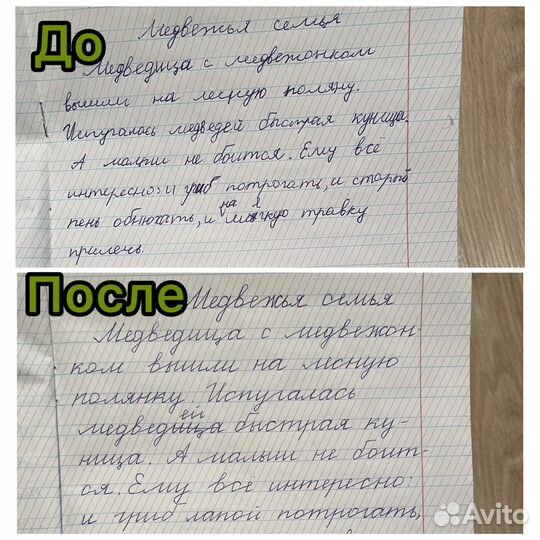 До
Медвежья семья
Медведица с медвежонком
вышли на лесную поляну.
Испугалась медведей быстрая куница.
А малыш не боится. Ему всё
интересно: и гриб потрогать, и старый
пень обнюхать, и на мягкую травку
прилечь.
После
Медвежья семья
Медведица с медвежон-
ком вышли на лесную
полянку. Испугалась
медведей быстрая ку-
ница. А малыш не боит-
ся. Ему все интересно:
и гриб лапой потрогать,
Avito